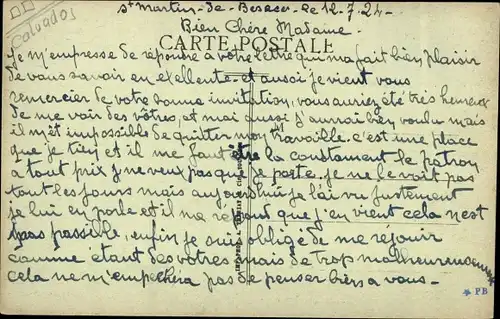 Calvados
St Martin-de-Besace-le 12.7.24-
Bien Chère Madame-
CARTE POSTALE
Je m'empresse de répondre à votre lettre qui ma fait bien plaisir
de vous savoir en exellente et aussi je vient vous
remercier de votre bonne invitation, vous auriez été très heureux
de me voir des vôtres, et moi aussi j'aurrai bien voulu mais
il m'ét impossible de quitter mon travaille c'est une place
que je tien et il me faut être la constament le patron
a tout prix ne veux pas que je parte. je ne le voit pas
tout les jours mais aujourd'hui je l'ai vu justement
je lui en parle et il me repont que j'en vient cela n'est
pas possible, enfin je suis obligé de me réjouir
comme étant des votres mais de trop malheureusement
cela ne m'empechera pas de penser biens a vous-
* FB